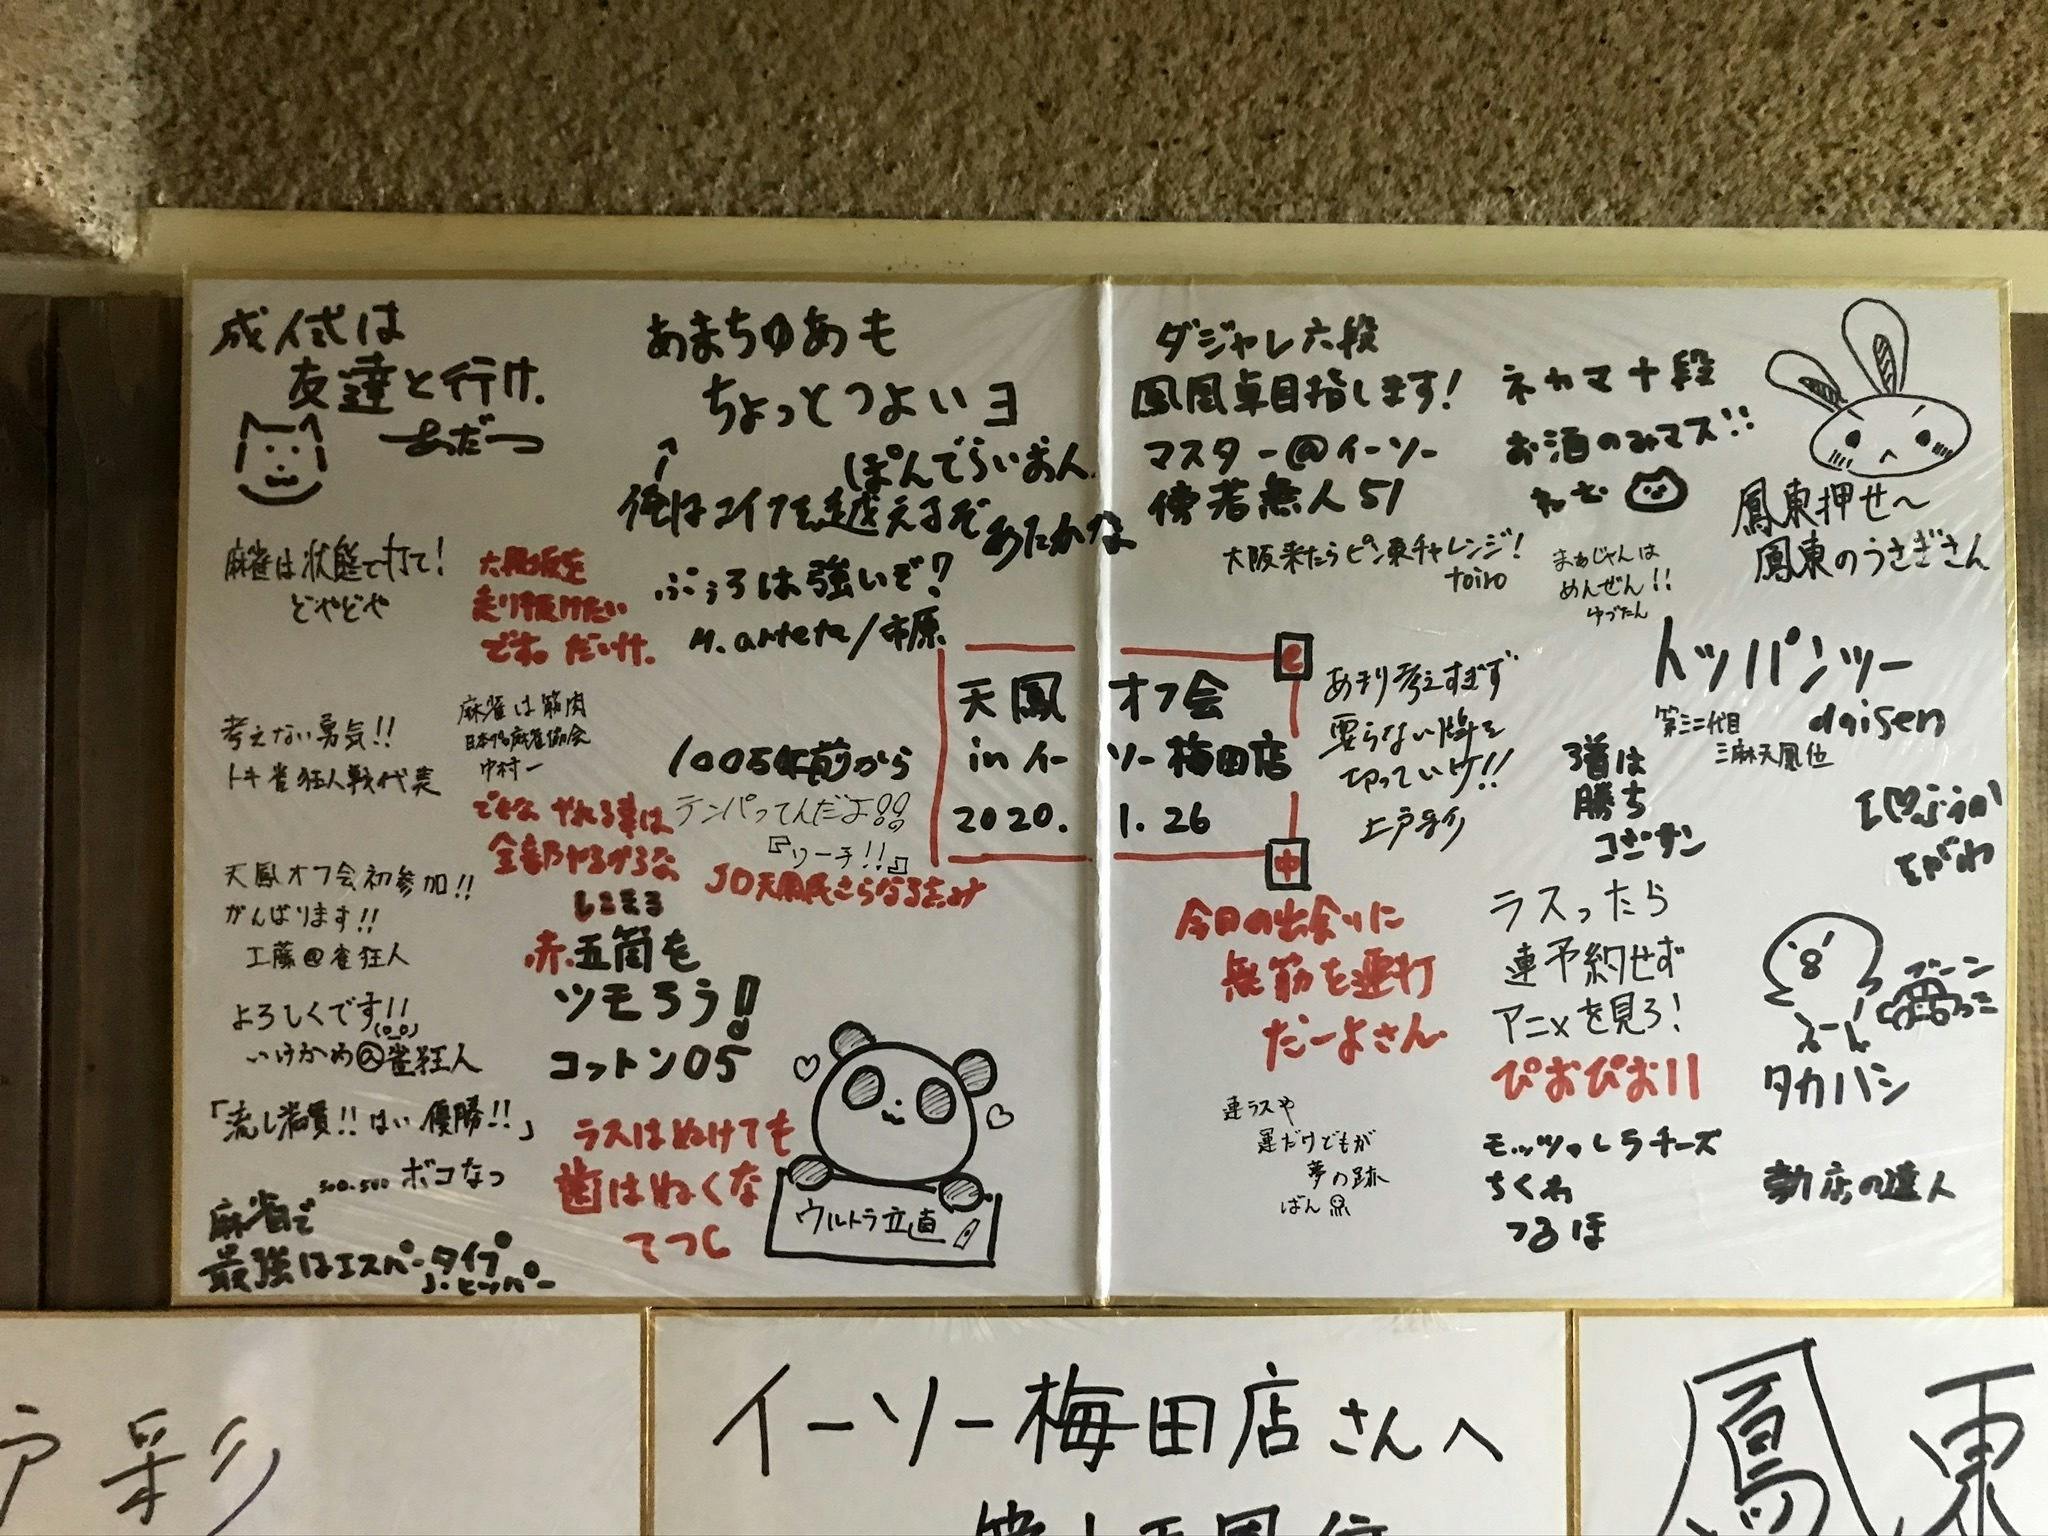 成人式は
友達と行け.
あだーつ
あまちゅあも
ちょっとつよいヨ
ぽんでらいおん
俺はコイツを越えるぞ
あたかな
麻雀は状態で打て!
どやどや
大阪を
走り抜けたい
です。だいけ.
ぶぅろは強いぞ?
M.arteta/市原
考えない勇気!!
トキ雀狂人戦代表
麻雀は筋肉
日本プロ麻雀協会
中村一
1005年前から
テンパってんだよ!!
『リーチ!!』
やれる事は
全部やるからな
JD天鳳民さらなる高みへ
天鳳オフ会初参加!!
がんばります!!
工藤@雀狂人
赤五筒も
ツモろう!
コットン05
よろしくです!!
いけかめ@雀狂人
「流し満貫!!はい優勝!!」
ボコなっ
麻雀で
最強はエスパータイプ
J・ヒッパー
ラスはぬけても
歯はぬくな
てつし
ウルトラ立直
天鳳 オフ会
in イーソー梅田店
2020. 1. 26
中
ダジャレ六段
鳳凰卓目指します!
マスター@イーソー
傍若無人51
ネカマ十段
お酒のみマス!!
ねむ
鳳東押せ〜
鳳東のうさぎさん
大阪来たらピン東チャレンジ!
toiro
まぁじゃんは
めんぜん!!
ゆづたん
あまり考えすぎず
要らない牌を
切っていけ!!
上戸彩
トツパンツー
daisen
第三二代目
三麻天鳳位
3着は
勝ち
コバサン
I♡ふうか
ちがわ
今日の出会いに
無筋を連打
だーよさん
ラスったら
連予約せず
アニメを見ろ!
ぴおぴお11
えーし
ブーン
タカハシ
連ラスや
運だけどもが
夢の跡
ばん
モッツァレラチーズ
ちくわ
つるほ
勤店の達人
戸彩
イーソー梅田店さんへ
鳳東